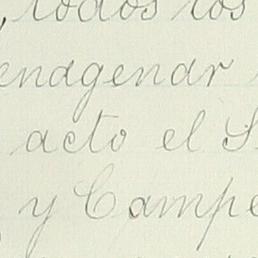 , todos los
enagenar
acto el S
y Campe